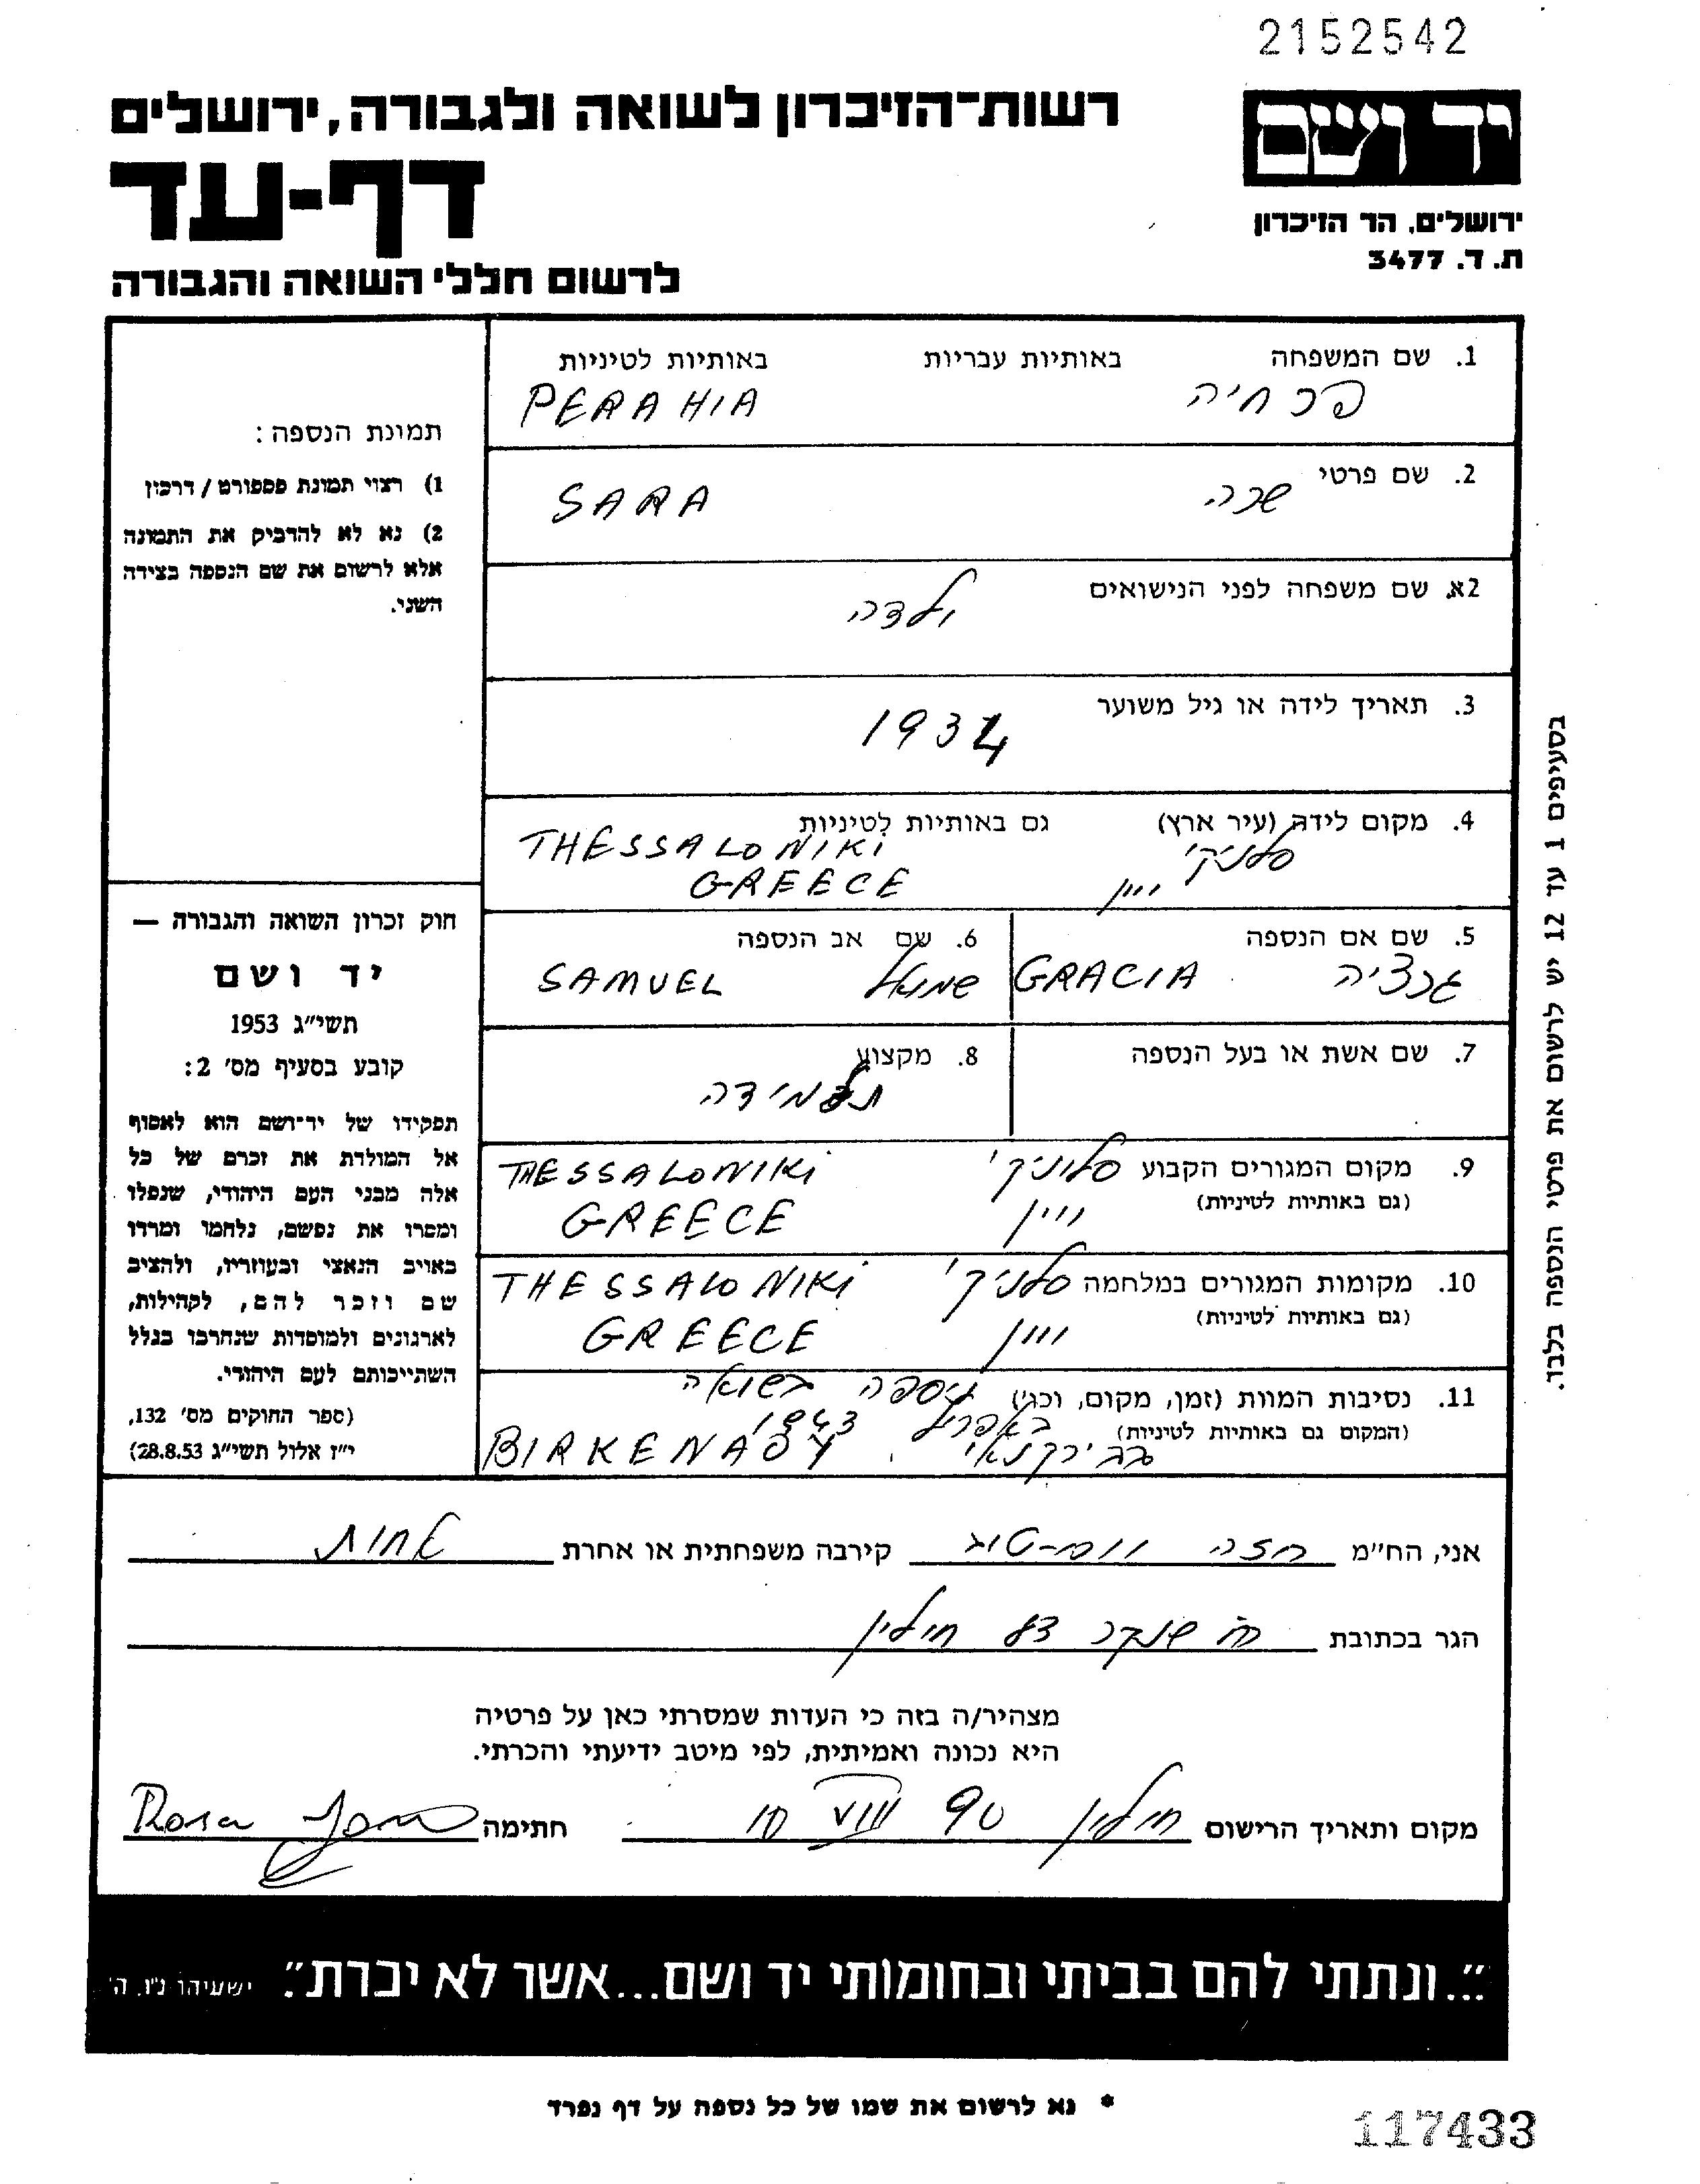 2152542
יד ושם
רשות־הזיכרון לשואה ולגבורה, ירושלים
דף-עד
ירושלים, הר הזיכרון
ת. ד. 3477
לרשום חללי השואה והגבורה
1. שם המשפחה באותיות עבריות באותיות לטיניות
פרחיה PERAHIA
2. שם פרטי
שרה SARA
2א. שם משפחה לפני הנישואים
ילדה
3. תאריך לידה או גיל משוער
1934
4. מקום לידה (עיר ארץ) גם באותיות לטיניות
סלוניקי THESSALONIKI
יוון GREECE
5. שם אם הנספה
גרציה GRACIA
6. שם אב הנספה
שמואל SAMUEL
7. שם אשת או בעל הנספה
8. מקצוע
תלמידה
9. מקום המגורים הקבוע סלוניקי THESSALONIKI
(גם באותיות לטיניות) יוון GREECE
10. מקומות המגורים במלחמה סלוניקי THESSALONIKI
(גם באותיות לטיניות) יוון GREECE
11. נסיבות המוות (זמן, מקום, וכו') ניספה בשואה
(המקום גם באותיות לטיניות) באפריל 1943
בבירקנאו BIRKENAU
תמונת הנספה:
1) רצוי תמונת פספורט / דרכון
2) נא לא להדביק את התמונה
אלא לרשום את שם הנספה בצידה
השני.
חוק זכרון השואה והגבורה —
יד ושם
תשי״ג 1953
קובע בסעיף מס׳ 2:
תפקידו של יד־ושם הוא לאסוף
אל המולדת את זכרם של כל
אלה מבני העם היהודי, שנפלו
ומסרו את נפשם, נלחמו ומרדו
באויב הנאצי ובעוזריו, ולהציב
שם וזכר להם, לקהילות,
לארגונים ולמוסדות שנחרבו בגלל
השתייכותם לעם היהודי.
(ספר החוקים מס׳ 132,
י״ז אלול תשי״ג 28.8.53)
בסעיפים 1 עד 12 יש לרשום את פרטי הנספה בלבד.
אני, הח״מ רוזה יום-טוב קירבה משפחתית או אחרת אחות
הגר בכתובת שנקר חולון
מצהיר/ה בזה כי העדות שמסרתי כאן על פרטיה
היא נכונה ואמיתית, לפי מיטב ידיעתי והכרתי.
מקום ותאריך הרישום חולון 90 VIII 10 חתימה Rosa
״...ונתתי להם בביתי ובחומותי יד ושם...אשר לא יכרת״. ישעיהו נ״ו, ה׳
* נא לרשום את שמו של כל נספה על דף נפרד
117433